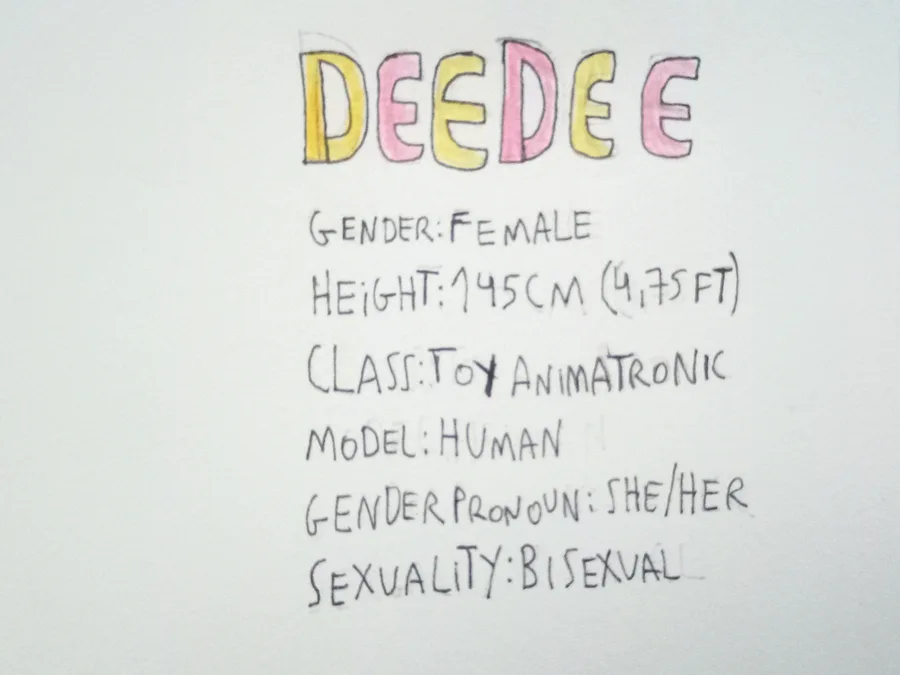 DEEDEE
GENDER:FEMALE
HEiGHT:145CM (4,75FT)
CLASS:TOY ANiMATRONIC
MODEL:HUMAN
GENDERPRONOUN:SHE/HER
SEXUALiTY:BISEXUAL